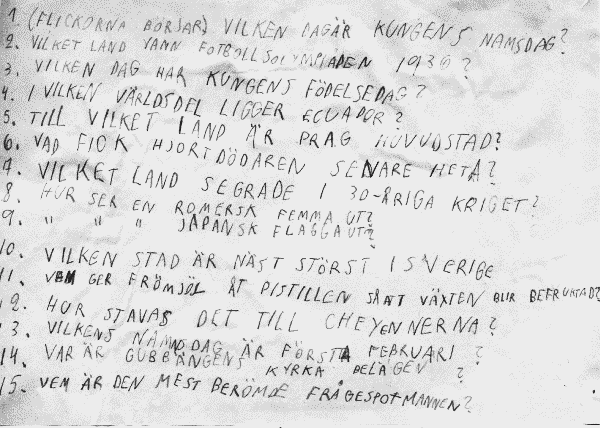 1 (FLICKORNA BÖRJAR) VILKEN DAG ÄR KUNGENS NAMSDAG?
2. VILKET LAND VANN FOTBOLLSOLYMPIADEN 1936?
3. VILKEN DAG HAR KUNGENS FÖDELSEDAG?
4. I VILKEN VÄRLDSDEL LIGGER ECUADOR?
5. TILL VILKET LAND ÄR PRAG HUVUDSTAD?
6. VAD FICK HJORTDÖDAREN SENARE HETA?
7. VILKET LAND SEGRADE I 30-ÅRIGA KRIGET?
8. HUR SER EN ROMERSK FEMMA UT?
9. " " " JAPANSK FLAGGA UT?
10. VILKEN STAD ÄR NÄST STÖRST I SVERIGE
11. VEM GER FRÖMJÖL ÅT PISTILLEN SÅATT VÄXTEN BLIR BEFRUKTAD?
12. HUR STAVAS DET TILL CHEYENNERNA?
13. VILKENS NAMNSDAG ÄR FÖRSTA FEBRUARI?
14. VAR ÄR GUBBÄNGENS KYRKA BELÄGEN?
15. VEM ÄR DEN MEST BERÖMDE FRÅGESPOTMANNEN?